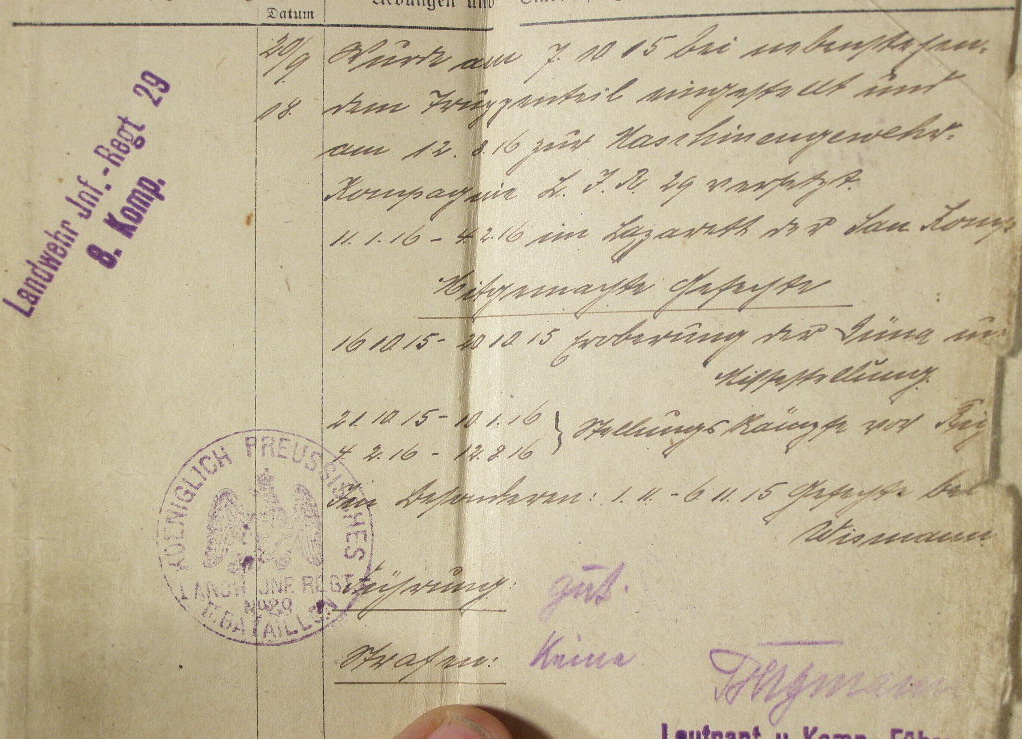 Datum
Uebungen und
Landwehr Jnf.-Regt 29
8. Komp.
20/9
18.
Wurde am 7. 10 15 bei nebenstehen-
dem Truppenteil eingestellt und
am 12. 8 16 zur Maschinengewehr-
Kompagnie L. J. R. 29 versetzt.
11. 1. 16 - 4. 2. 16 im Lazarett der San Komp
Mitgemachte Gefechte
16 10 15 - 20 10 15 Eroberung der Düna
21. 10 15 - 10. 1. 16
4 2. 16 - 12. 8 16 } Stellungskämpfe vor
Im Besonderen: 1. 11. - 6 11. 15 Gefechte bei
Wismann
Führung: gut.
Strafen: Keine
Bergmann
Leutnant u. Komp.
KOENIGLICH PREUSSISCHES
LANDW. JNF. REGT
No 29
II. BATAILLON